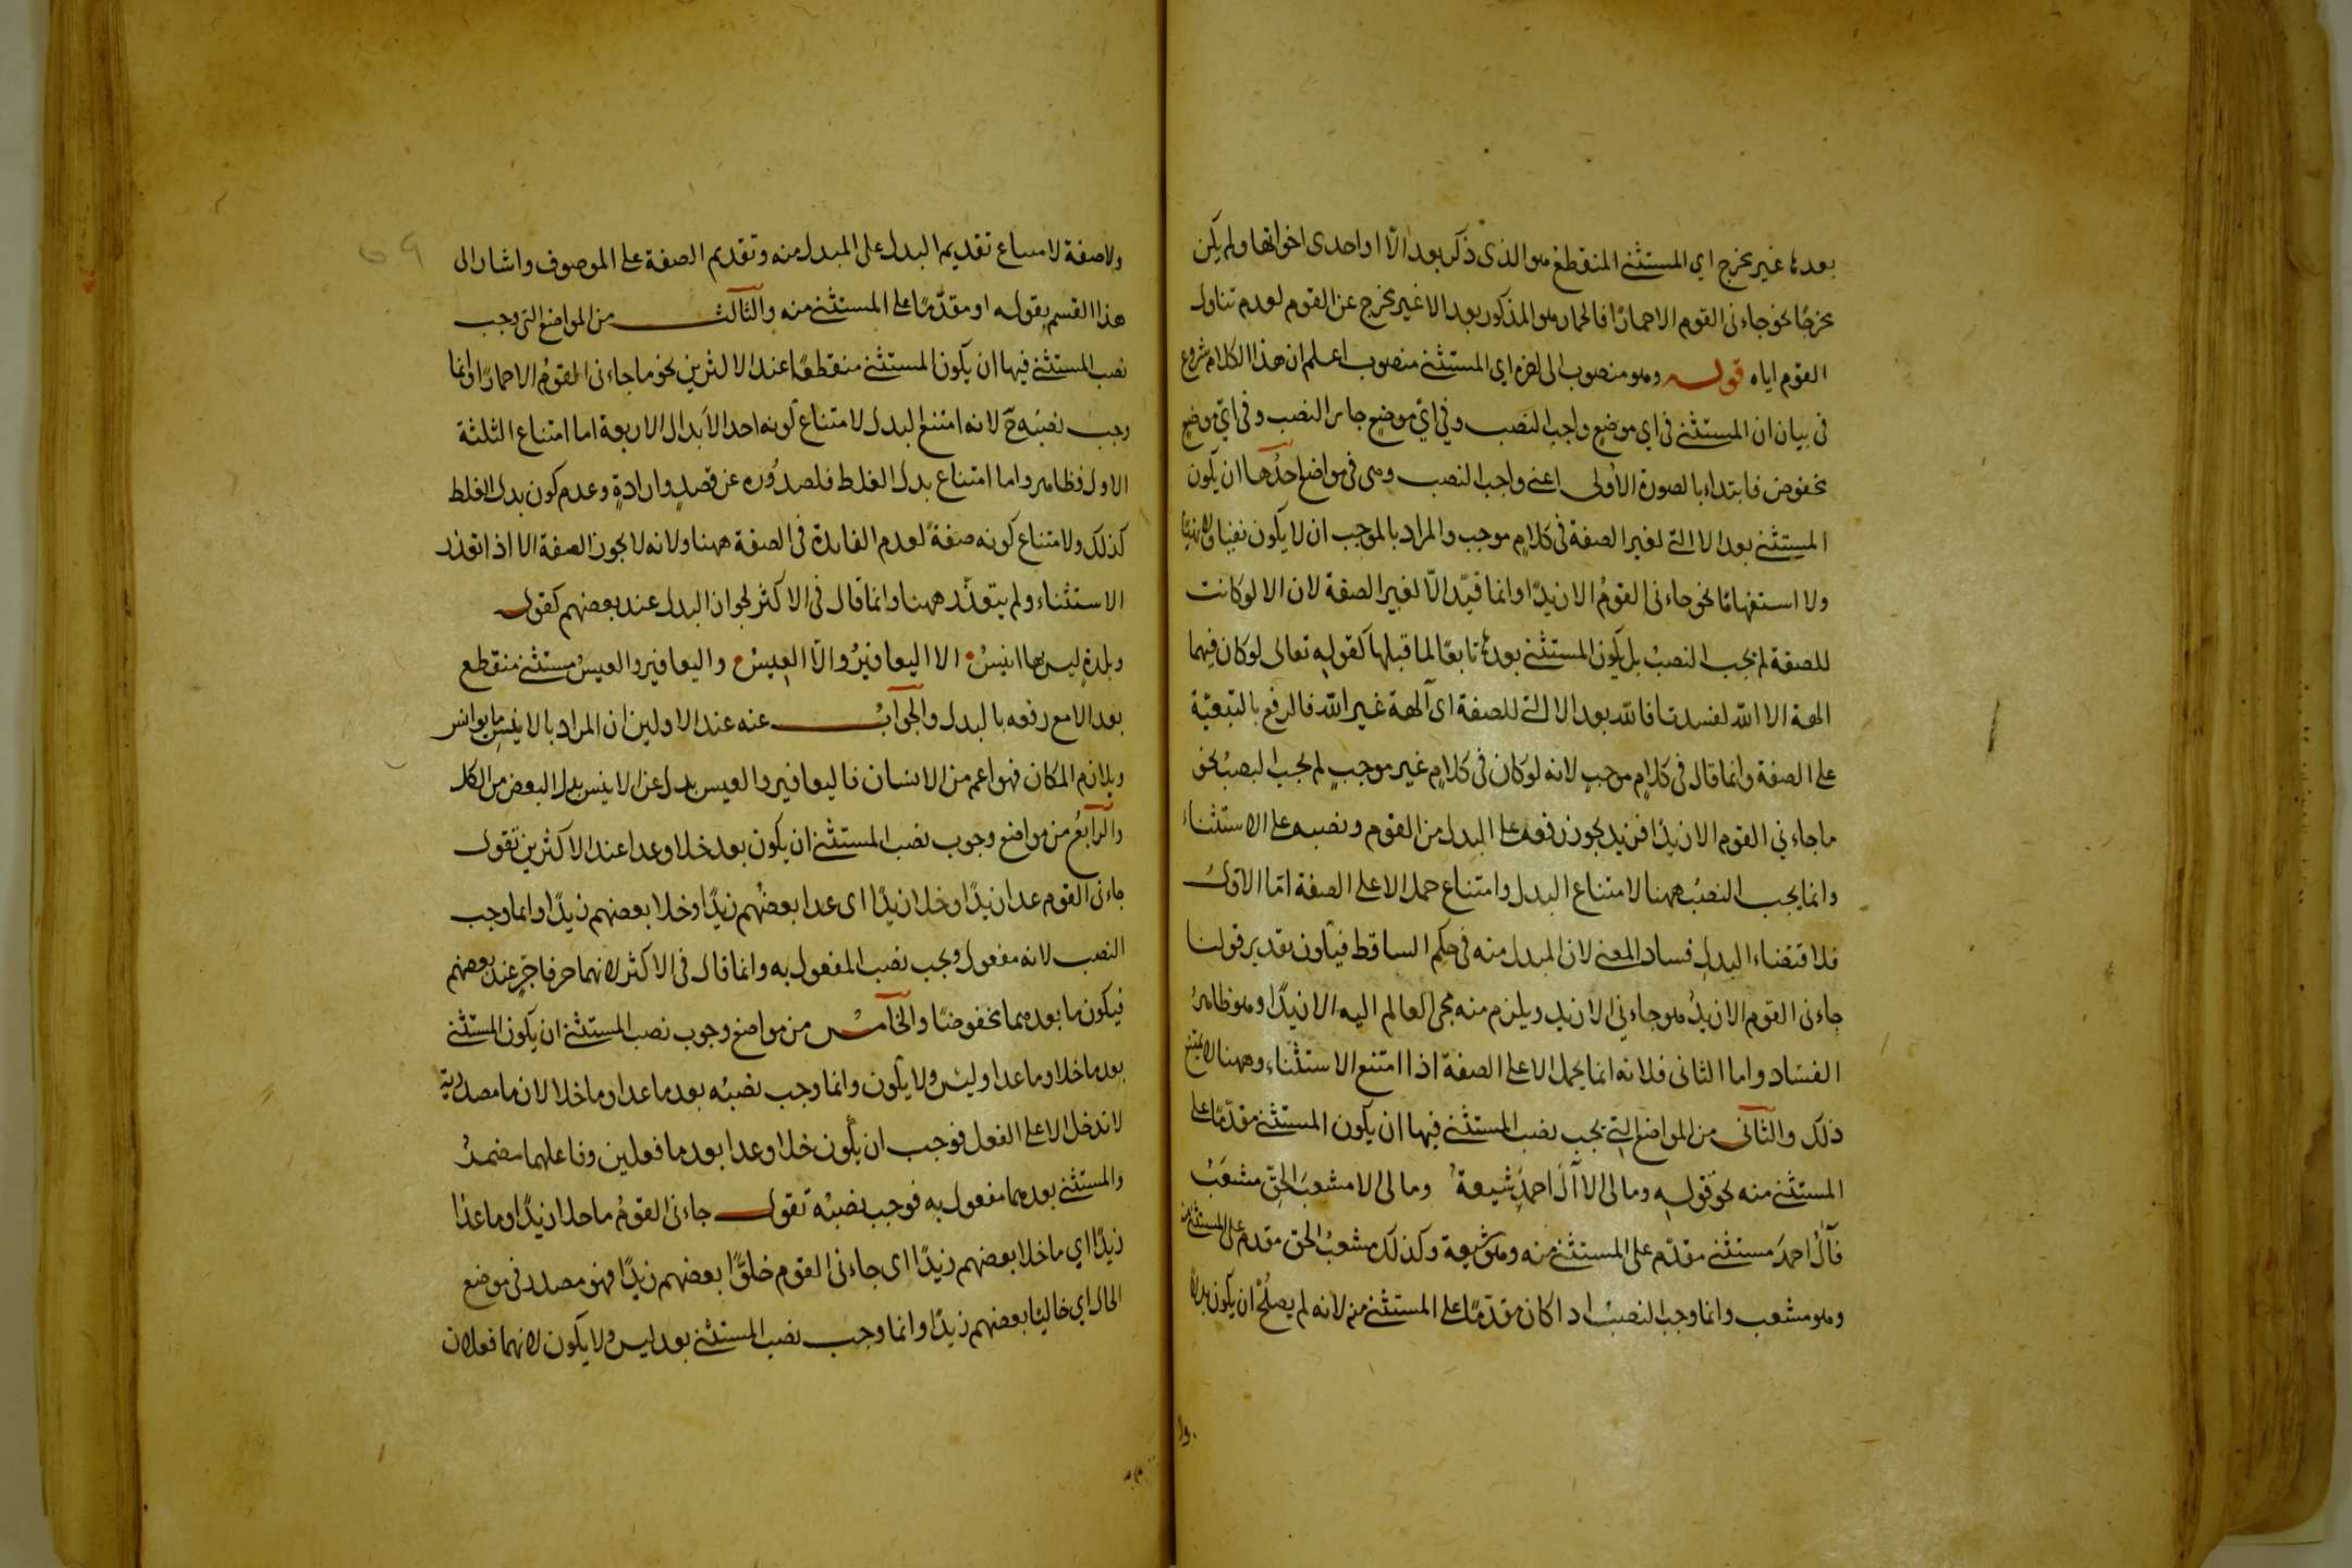 بعدها غير مخرج اي المستثنى المنقطع هو الذى ذكر بعد الّا او احدى اخواتها ولم يكن
مخرجًا نحو جاءنى القوم الا حمارًا فالحمار هو المذكور بعد الا غير مخرج عن القوم لعدم تناول
القوم اياه قوله وهو منصوب الى اخره اي المستثنى منصوب اعلم ان هذا الكلام شروع
فى بيان ان المستثنى فى اي موضع واجب النصب وفي ايّ موضع جايز النصب وفى ايّ موضع
مخفوض فابتداء بالصورة الاُولى اعنى واجب النصب وهى فى مواضع احدُها ان يكون
المستثنى بعد الا التى لغير الصفة فى كلامٍ موجب والمراد بالموجب ان لا يكون نفيا ولا نهيًا
ولا استفهامًا نحو جاءنى القومُ الا زيدًا وانما قيّد الّا لغير الصفة لان الا لو كانت
للصفة لم يجب النصبُ بل يكون المستثنى بعدها تابعًا لما قبلها كقوله تعالى لو كان فيهما
الهة الا الله لفسدتا فالله بعد الا التى للصفة اى آلهة غير الله فالرفع بالتبعيّة
على الصفة وانما قال فى كلامٍ موجبٍ لانه لو كان فى كلامٍ غير موجبٍ لم يجب النصبُ نحو
ما جاءني القوم الا زيدًا فزيد يجوز رفعه على البدل من القوم ونصبه على الاستثناء
وانما يجب النصبُ ههنا لامتناع البدل وامتناع حمل الا على الصفة امّا الاوّلُ
فلاقتضاء البدلِ فساد المعنى لان المبدل منه فى حكم الساقط فيكون تقدير قولنا
جاءنى القوم الا زيدٌ هو جاءني الا زيد ويلزم منه مجئ العالم اليه الا زيدًا وهو ظاهرُ
الفسَاد واما الثانى فلانه انما يحمل الا على الصفة اذا امتنع الاستثناء وههنا لا يمتنع
ذلك والثانى من المواضع التى يجب نصب المستثنى فيها ان يكون المستثنى مقدّمًا على
المستثنى منه نحو قوله وما لى الا آلَ احمدَ شيعةٌ وما لى الا مشعبَ الحقِّ مشعَبُ
فآلُ احمدَ مستثنى مقدّم على المستثنى منه وهو شيعة وكذلك مشعبُ الحق مقدم على المستثنى منه
وهو مشعب وانما وجب النصبُ اذا كان مقدّمًا على المستثنى منه لانه لم يصلُحْ ان يكون بدلا
ولا صفة لامتناع تقديم البدل على المبدل منه وتقديم الصفة على الموصوف واشار الى
هذا القسم بقوله او مقدّمًا على المستثنى منه والثالث من المواضع التى وجب
نصب المستثنى فيها ان يكون المستثنى منقطعًا عند الاكثرين نحو ما جاءنى القومُ الا حمارًا وانما
وجب نصبُه حٓ لانه امتنع البدل لامتناع كونه احد الاَبدال الاربعة اما امتناع الثلثة
الاول فظاهر واما امتناع بدل الغلط فلصدُوره عن قصدٍ وارادةٍ وعدم كون بدل الغلط
كذلك ولامتناع كونه صفةً لعدم الفايدة فى الصفة ههنا ولانه لا يجوز الصفة الا اذا تعذر
الاستثناء ولم يتعذّر ههنا وانما قال فى الاكثر لجواز البدل عند بعضهم كقوله
وبلدةٍ ليس بها انيسُ الا اليعافيرُ والّا العِيسُ واليعافير والعيسُ مستثنى منقطع
بعد الا مع رفعه بالبدل والجوابُ عنه عند الاولين ان المراد بالانيس ما يوانس
ويلازم المكان فهو اعم من الانسان فاليعافير والعيس بدل عن الانيس بدل البعض من الكل
والرابعُ من مواضع وجوب نصب المستثنى ان يكون بعد خلا وعدا عند الاكثرين تقول
جاءنى القوم عدا زيدًا وخلا زيدًا اى عدا بعضُهم زيدًا وخلا بعضهم زيدًا وانما وجب
النصب لانه مفعول ويجب نصب المفعول به وانما قال فى الاكثر لانهما حرفا جرٍّ عند بعضهم
فيكون ما بعدهما مخفوضًا والخامسُ من مواضع وجوب نصب المستثنى ان يكون المستثنى
بعد ما خلا وما عدا وليس ولا يكون وانما وجب نصبُه بعد ما عدا وما خلا لان ما مصدرية
لا تدخل الا على الفعل فوجب ان يكون خلا وعدا بعد ما فعلين وفاعلهما مضمرٌ
والمستثنى بعدهما مفعول به فوجب نصبُه تقول جاءنى القومُ ما خلا زيدًا وما عدا
زيدًا اي ما خلا بعضهم زيدًا اى جاءنى القوم خلوًّا بعضهم زيدًا فهو مصدر فى موضع
الحال اي خاليًا بعضهم زيدًا وانما وجب نصب المستثنى بعد ليس ولا يكون لانهما فعلان
ولا